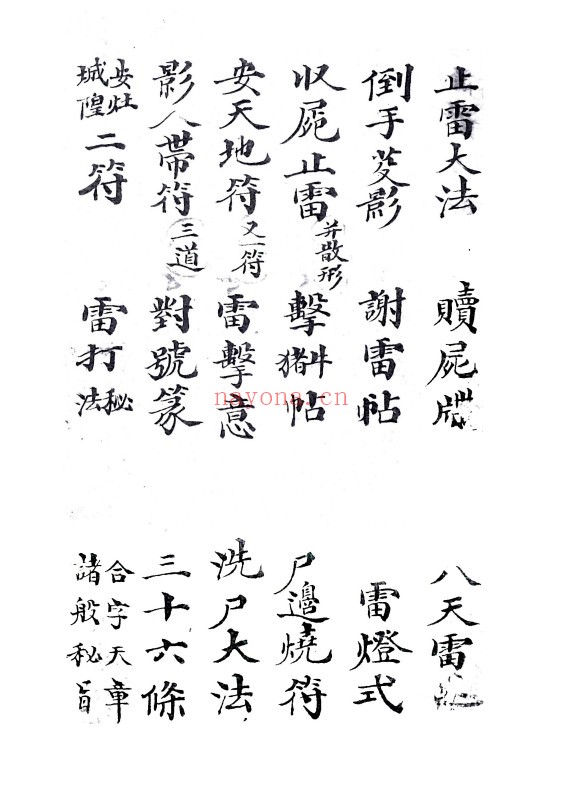 止雷大法 贖屍 八天雷
倒手芟影 謝雷帖 雷燈式
収屍止雷 并散形 擊牛猪帖 尸邊燒符
安天地符 又一符 雷擊意 洗尸大法
影人帯符 三道 對號篆 三十六條
安灶城隍二符 雷打秘法 合字天章諸般秘旨
nayona.cn